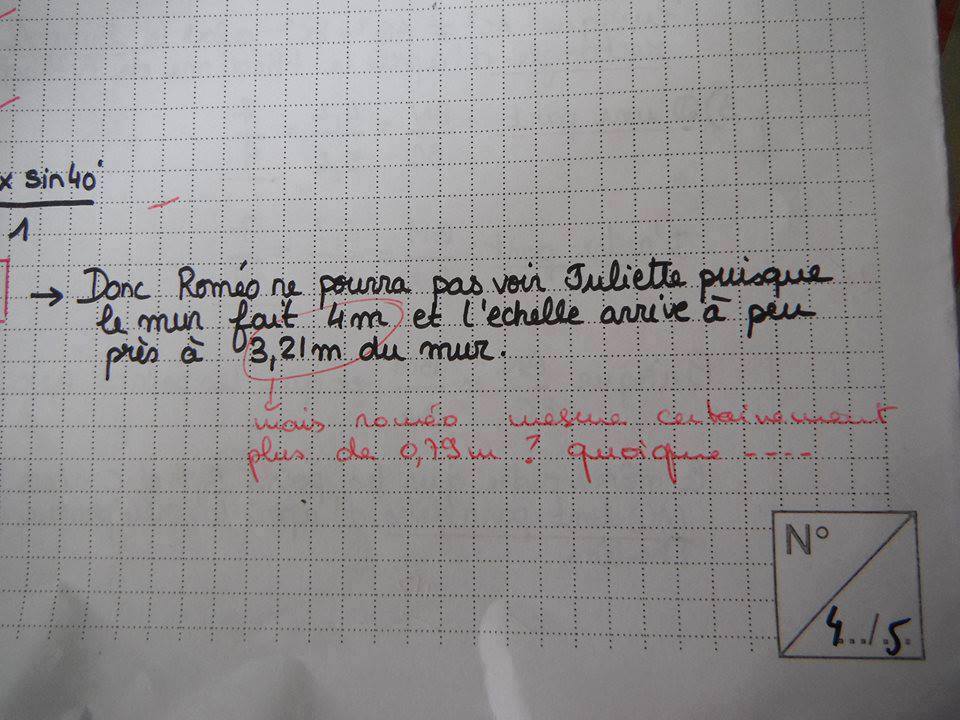 x sin 40°
1
→ Donc Roméo ne pourra pas voir Juliette puisque
le mur fait 4m et l'echelle arrive à peu
près à 3,21m du mur.
mais roméo mesure certainement
plus de 0,79m ? quoique ----
N°
4../.5.